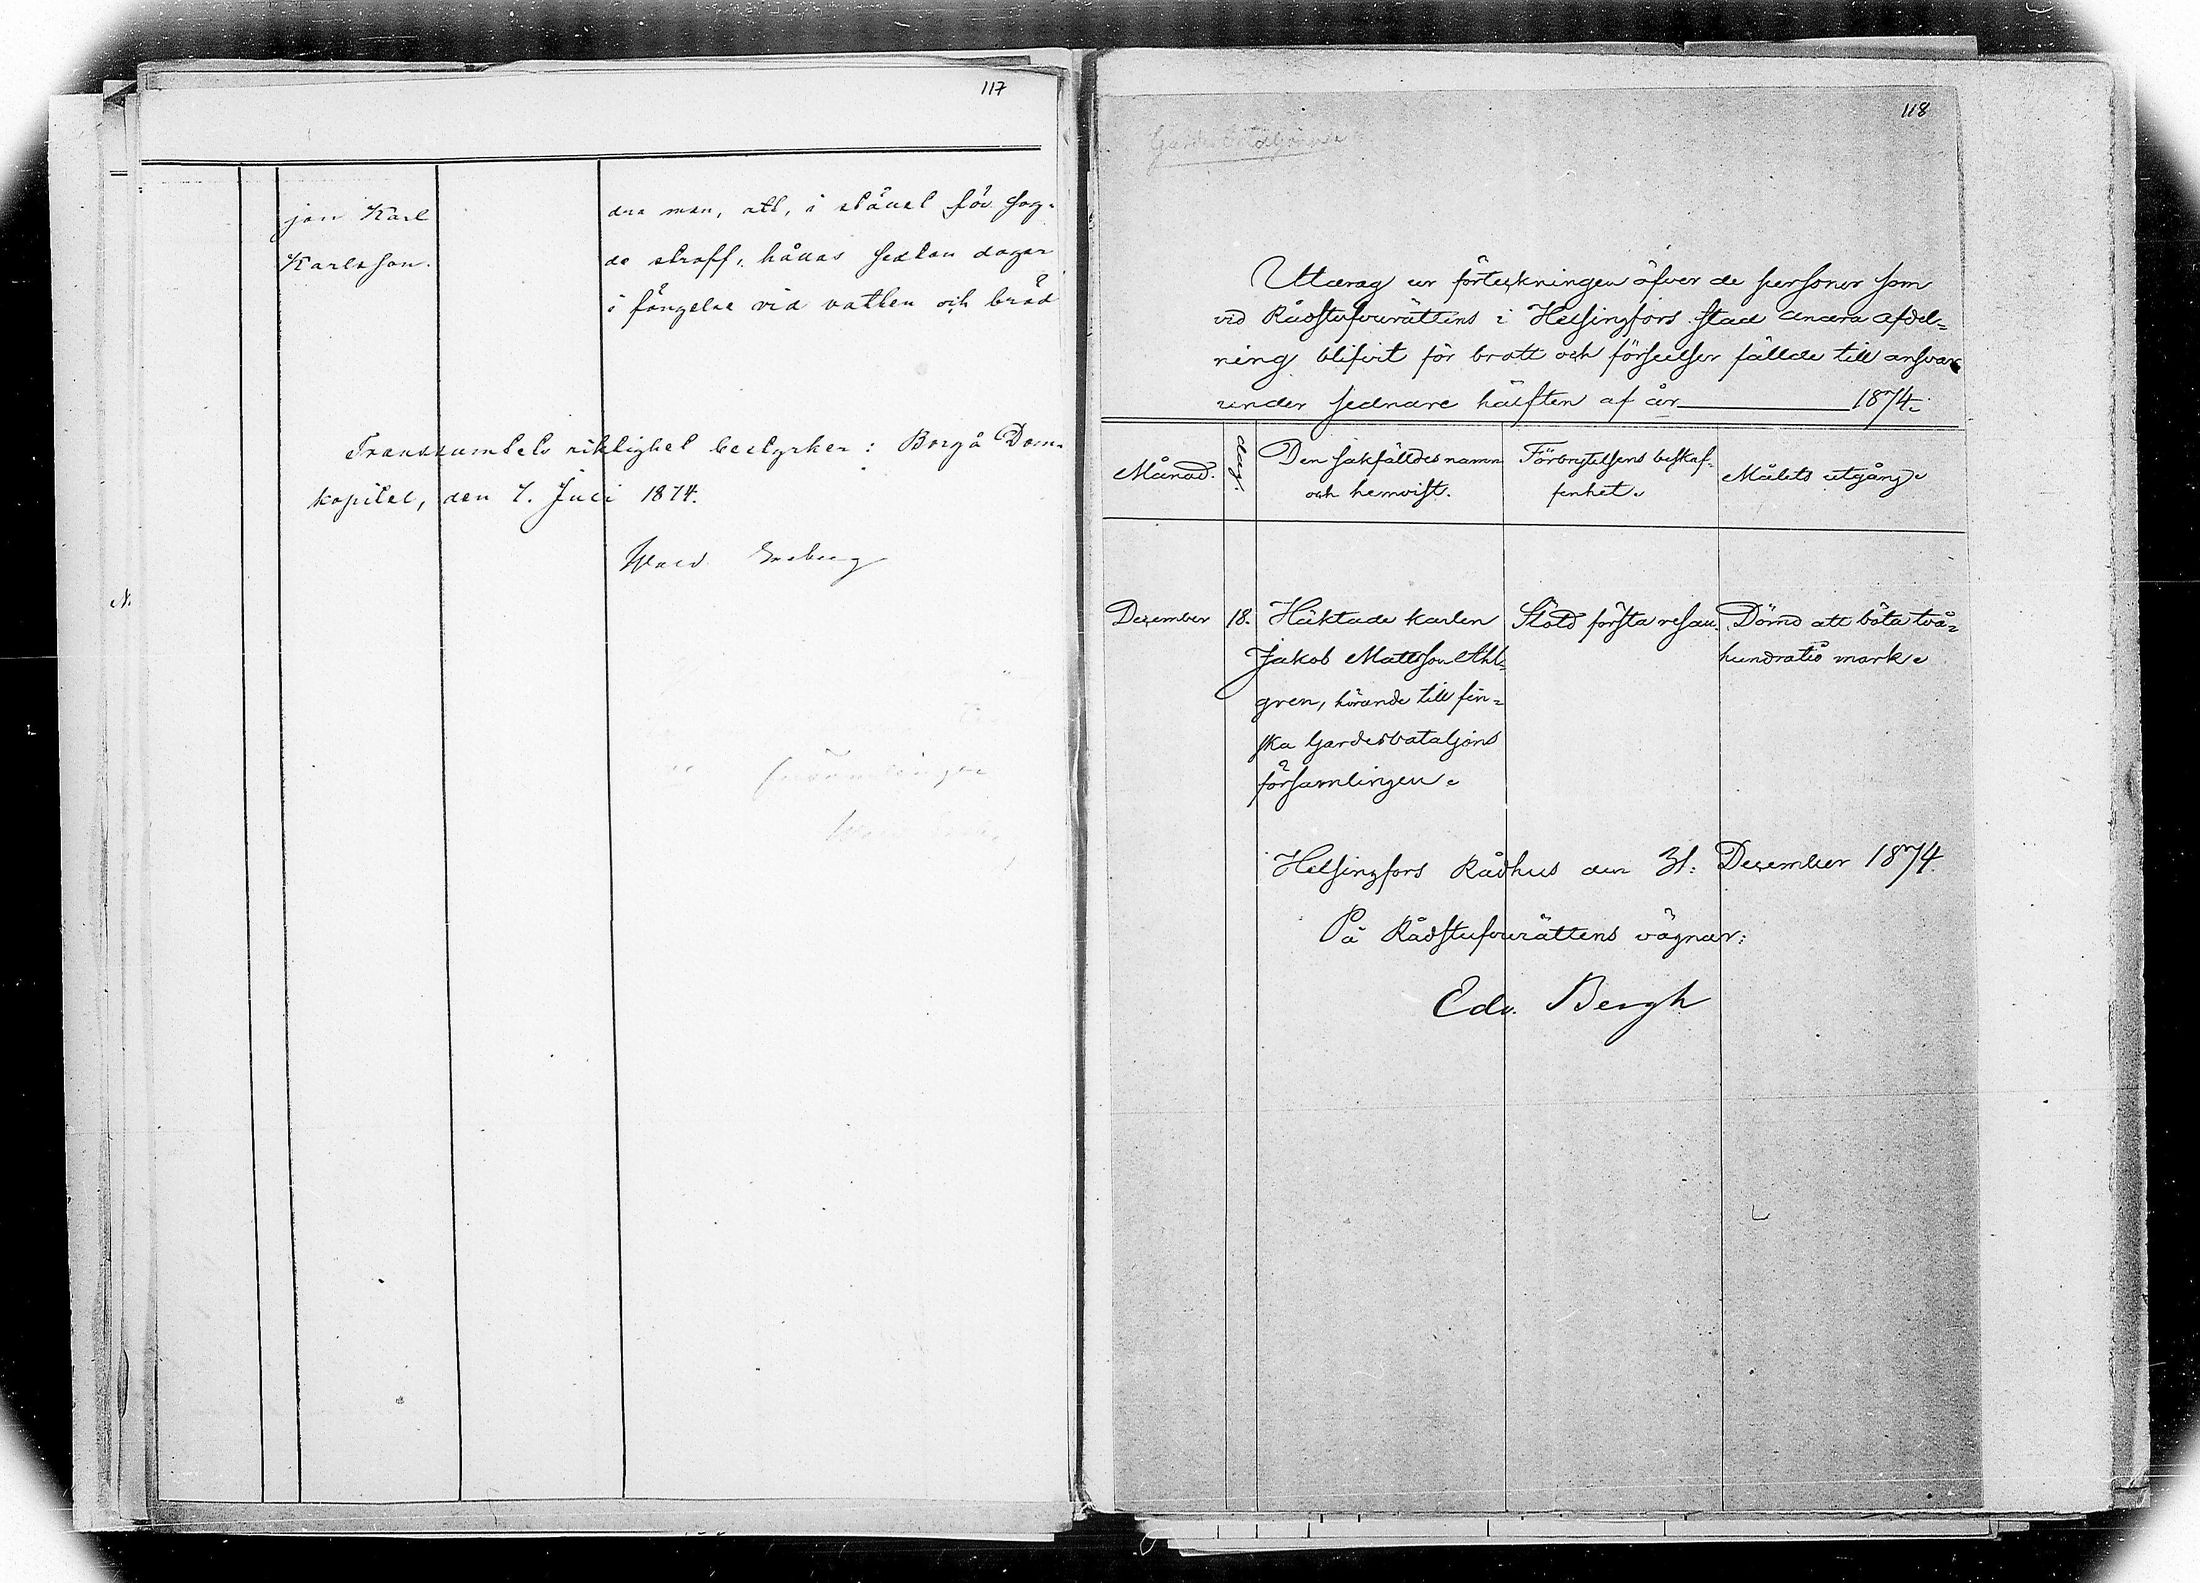 117
jon Karl
Karlsson.
dra man, att, i stället för sag-
da straff, hållas sexton dagar
i fängelse vid vatten och bröd
Transsumtets riktighet bestyrker: Borgå Dom-
kapitel, den 7. Juli 1874.
118
Utdrag ur förteckningen öfver de personer som
vid Rådstufvurättens i Helsingfors stad andra afdel-
ning blifvit för brott och förseelser fällde till ansvar
under sednare hälften af år 1874.
Månad.
dag.
Den sakfälldes namn
och hemvist.
Förbrytelsens beskaf-
fenhet.
Målets utgång.
December
18.
Häktade karlen
Jakob Mattsson Ahl-
gren, hörande till fin-
ska Gardesbataljons
församlingen.
Stöld första resan.
Dömd att böta två-
hundratio mark.
Helsingfors Rådhus den 31. December 1874.
På Rådstufvurättens vägnar:
Edv. Bergh